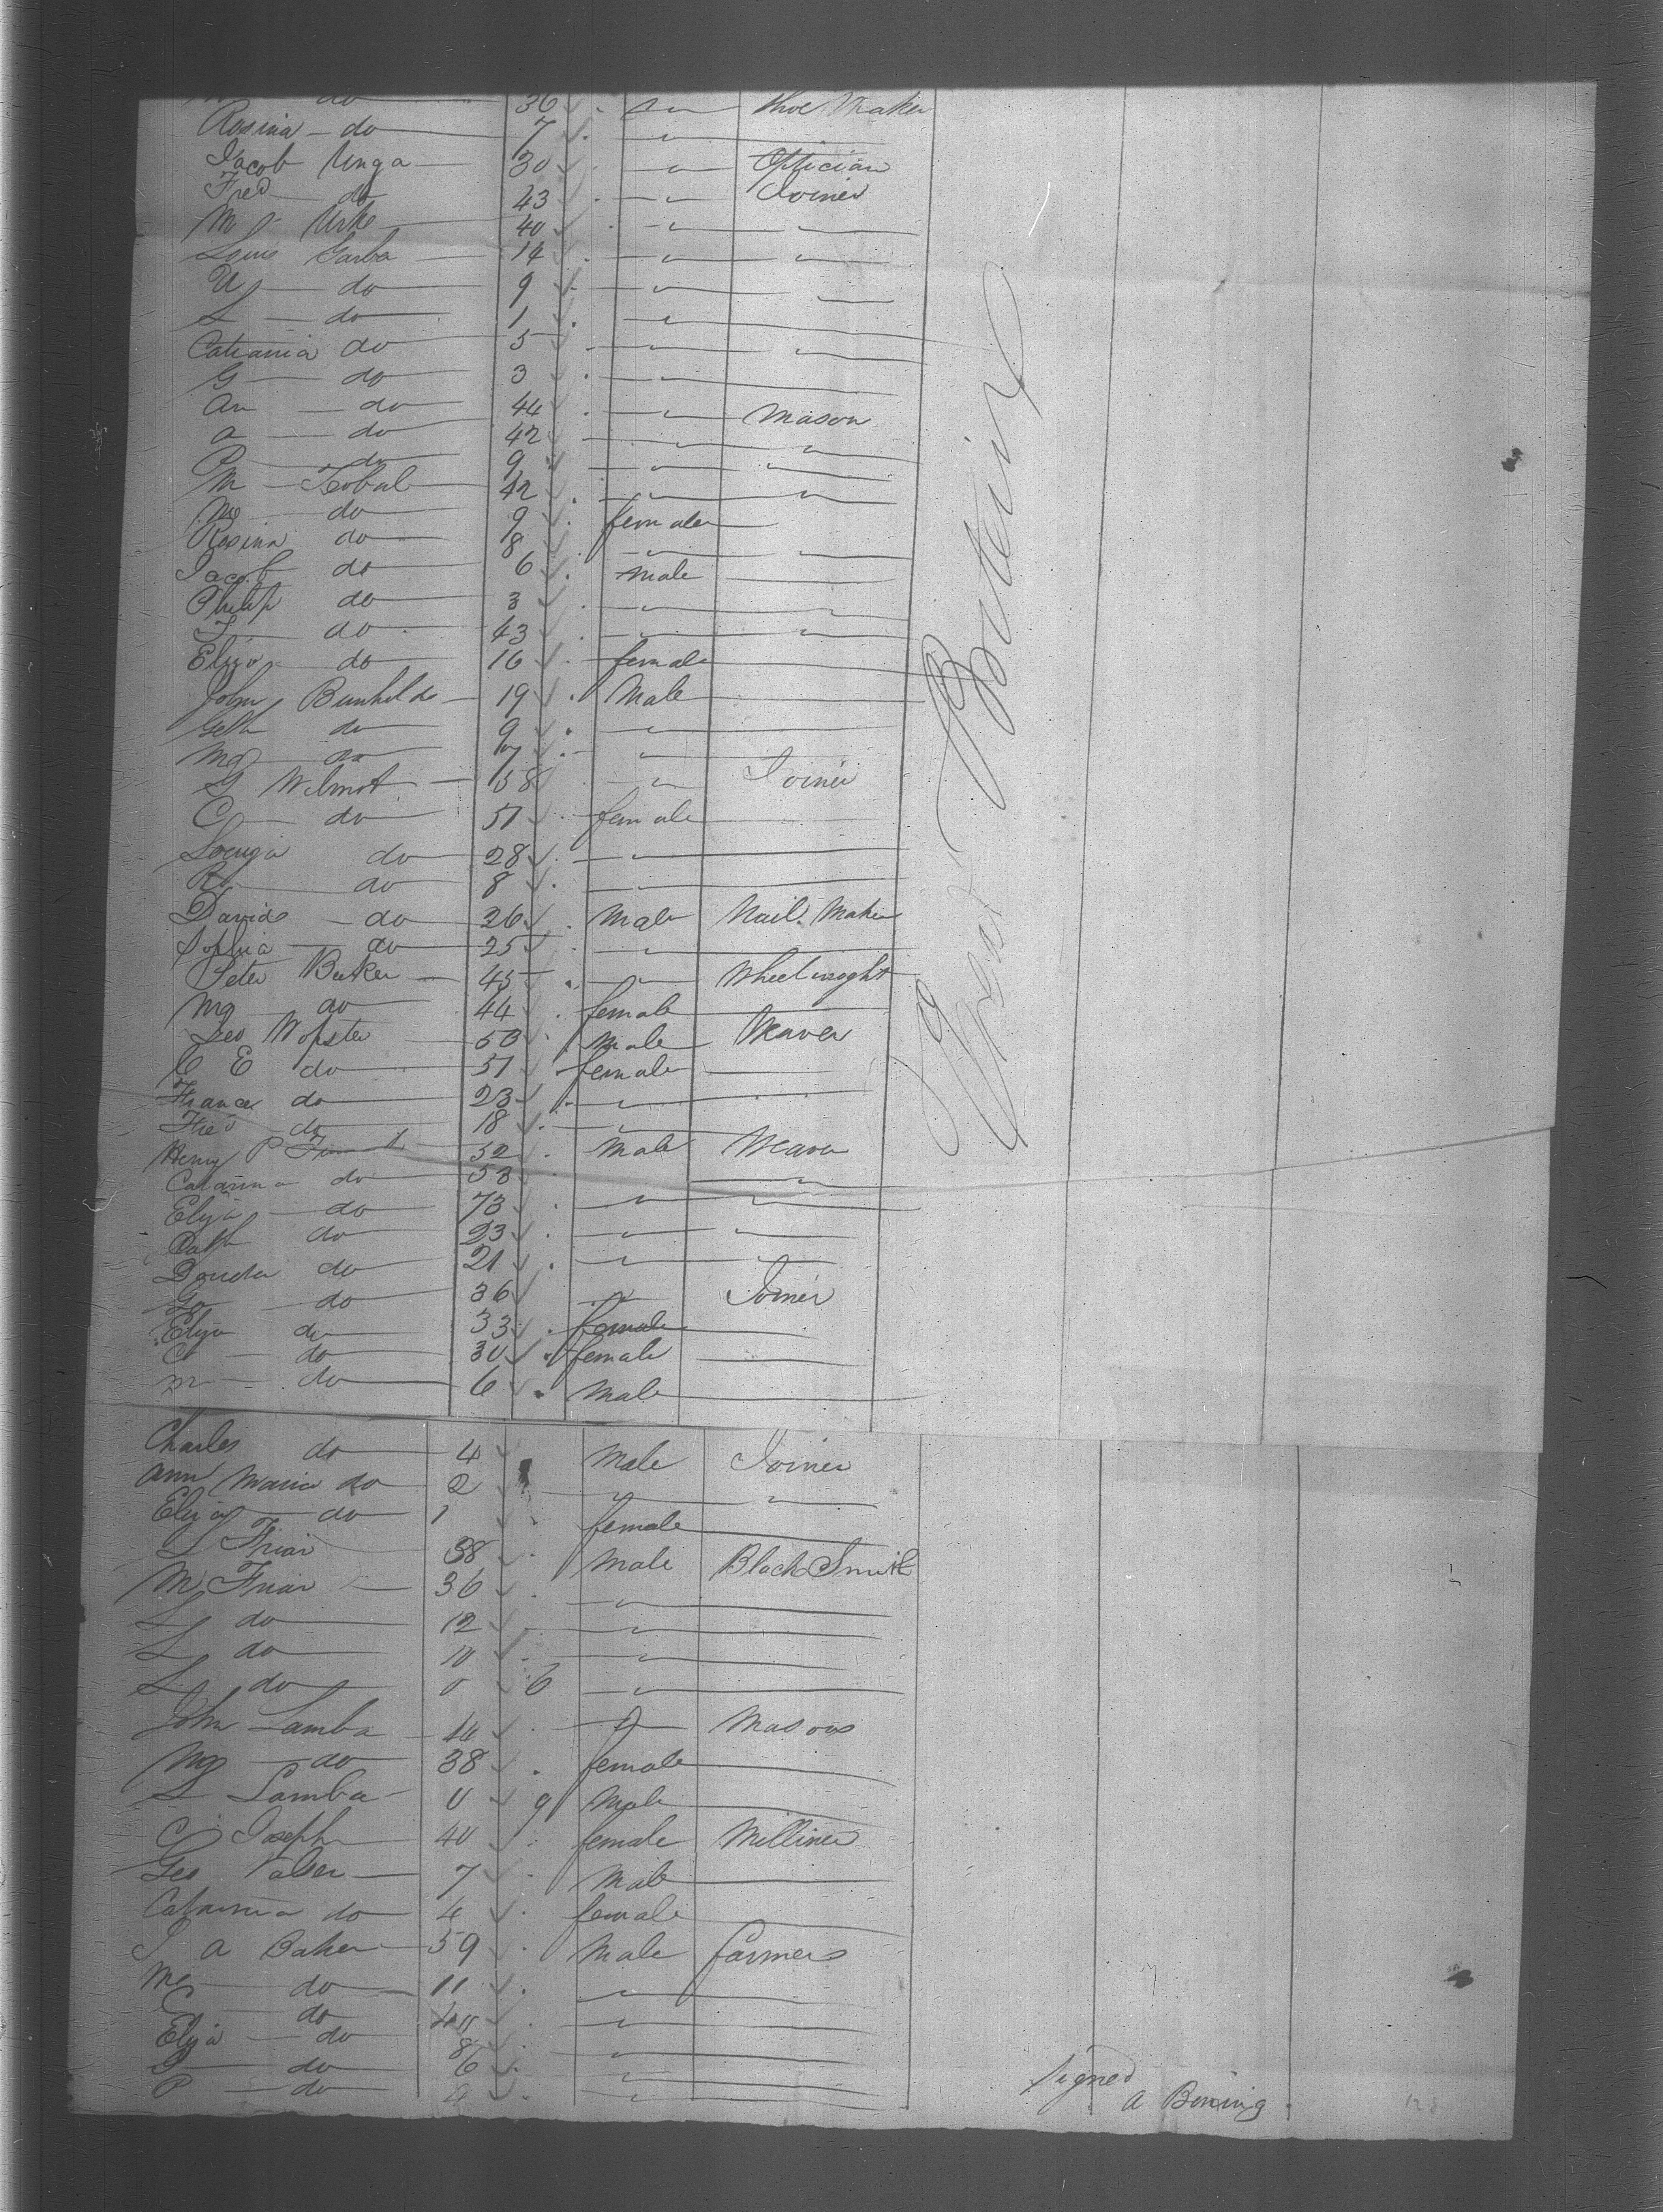 do 36 Shoe Maker
Rosina do 7
Jacob Unga 30 Optician
Fred do 43 Joiner
M Urke 40
Louis Garba 14
U do 9
L do 1
Catrania do 5
G do 3
An do 44 Mason
a do 42
P do 9
M Isobal 42
Mg do 9 female
Rosina do 8
Jacob do 6 male
Philip do 3
J do 43
Eliza do 16 female
John Bunhilds 19 Male
Geth do 9
Mg do
G Wilmot 58 Joiner
C do 51 female
Do 28
Ro do 8
Davids do 26 Male Nail Maker
Sophia do 25
Peter Barker 45 Wheelwright
Mg do 44 female
Geo Wopster 53 Male Weaver
C E do 51 female
France do 23
Fred do 18
Henry P 52 Male Weaver
Catarina do 53
Eliza do 73
Cath do 23
do 21
Go do 36 Joiner
Eliza do 33 female
C do 30 female
m do 6 Male
Charles do 4 Male Joiner
Ann Maria do 2
Eliza do 1 female
L Friar 38 Male Black Smith
M Friar 36
L do 12
L do 10
L do 0 6
John Lamba Masons
Mg do 38 female
L Lamba 0 9 Male
C Joseph 40 female Milliner
Geo 7 Male
Catarina do 4 female
J A Baker 59 Male farmers
Mg do 11
C do
Eliza do 8
G do 6
P do
Great Britain
Signed
A Boning